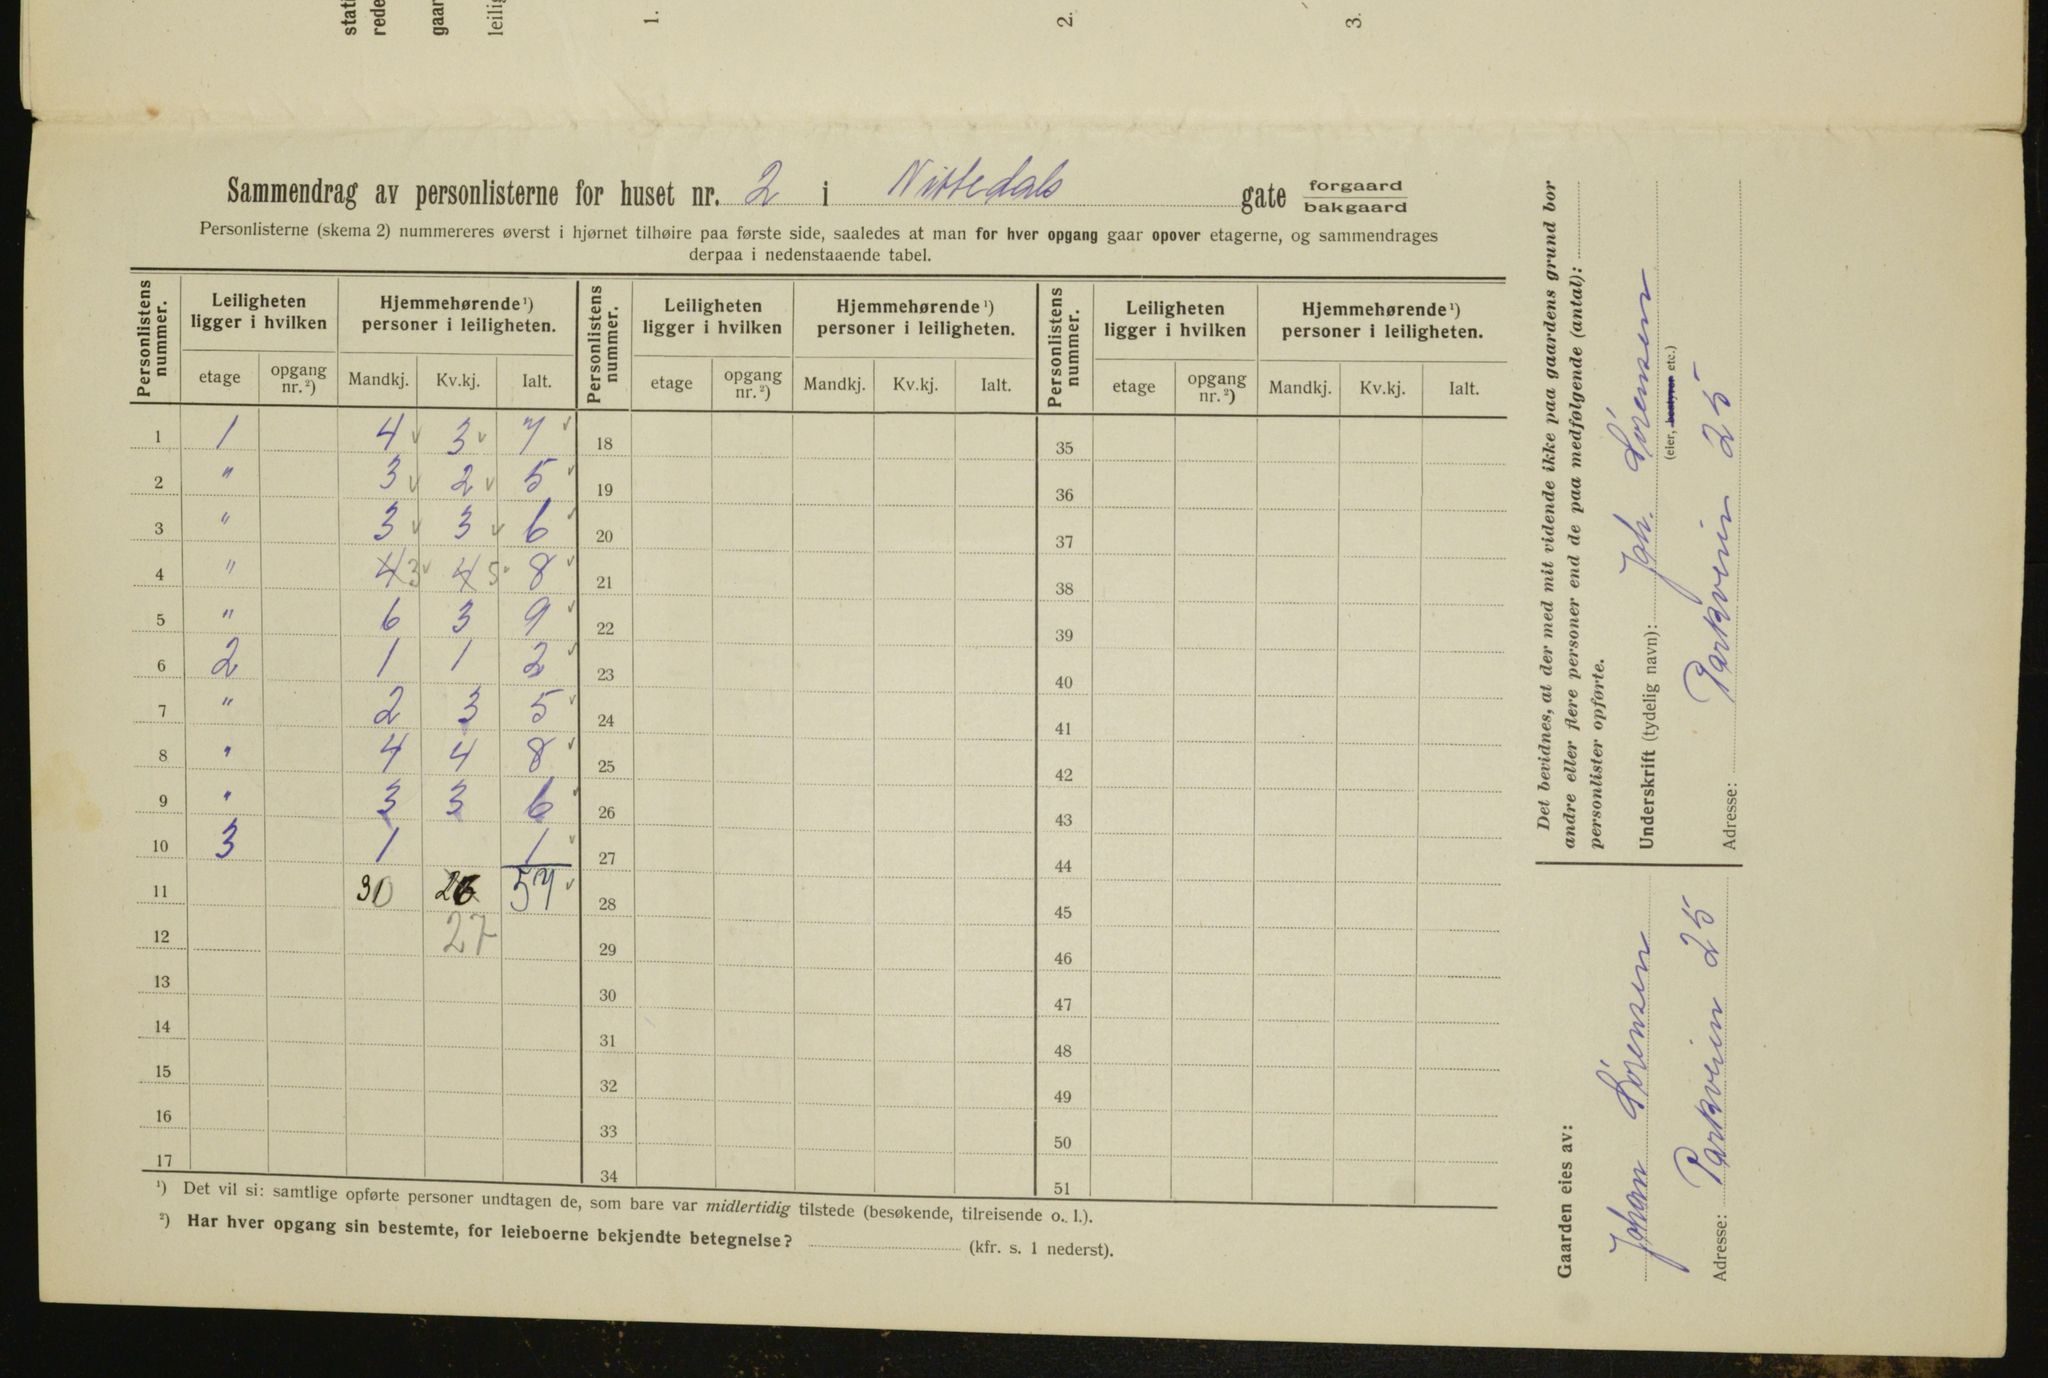 stati
rede
gaar
leilig
1.
2.
3.
Sammendrag av personlisterne for huset nr. 2 i Nittedals gate forgaard
bakgaard
Personlisterne (skema 2) nummereres øverst i hjørnet tilhøire paa første side, saaledes at man for hver opgang gaar opover etagerne, og sammendrages
derpaa i nedenstaaende tabel.
Personlistens nummer. Leiligheten ligger i hvilken Hjemmehørende ¹) personer i leiligheten. Personlistens nummer. Leiligheten ligger i hvilken Hjemmehørende ¹) personer i leiligheten. Personlistens nummer. Leiligheten ligger i hvilken Hjemmehørende ¹) personer i leiligheten.
etage opgang nr. ²) Mandkj. Kv.kj. Ialt. etage opgang nr. ²) Mandkj. Kv.kj. Ialt. etage opgang nr. ²) Mandkj. Kv.kj. Ialt.
1 1 4 ✓ 3 ✓ 7 ✓ 18 35
2 " 3 ✓ 2 ✓ 5 ✓ 19 36
3 " 3 ✓ 3 ✓ 6 ✓ 20 37
4 " 4 3 ✓ 4 5 ✓ 8 ✓ 21 38
5 " 6 3 9 ✓ 22 39
6 2 1 1 2 ✓ 23 40
7 " 2 3 5 ✓ 24 41
8 " 4 4 8 ✓ 25 42
9 " 3 3 6 ✓ 26 43
10 3 1 1 ✓ 27 44
11 30 26 57 ✓ 28 45
12 27 29 46
13 30 47
14 31 48
15 32 49
16 33 50
17 34 51
¹) Det vil si: samtlige opførte personer undtagen de, som bare var midlertidig tilstede (besøkende, tilreisende o. l.).
²) Har hver opgang sin bestemte, for leieboerne bekjendte betegnelse? (kfr. s. 1 nederst).
Det bevidnes, at der med mit vidende ikke paa gaardens grund bor
andre eller flere personer end de paa medfølgende (antal):
personlister opførte.
Underskrift (tydelig navn): Joh. Sörensen
(eier, bestyrer etc.)
Adresse: Parkveien 25
Gaarden eies av:
Johan Sörensen
Adresse: Parkveien 25